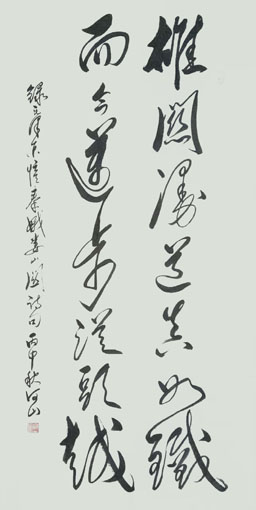 雄關漫道真如鐵
而今邁步從頭越
錄毛澤東憶秦娥婁山關詩句丙申秋河山